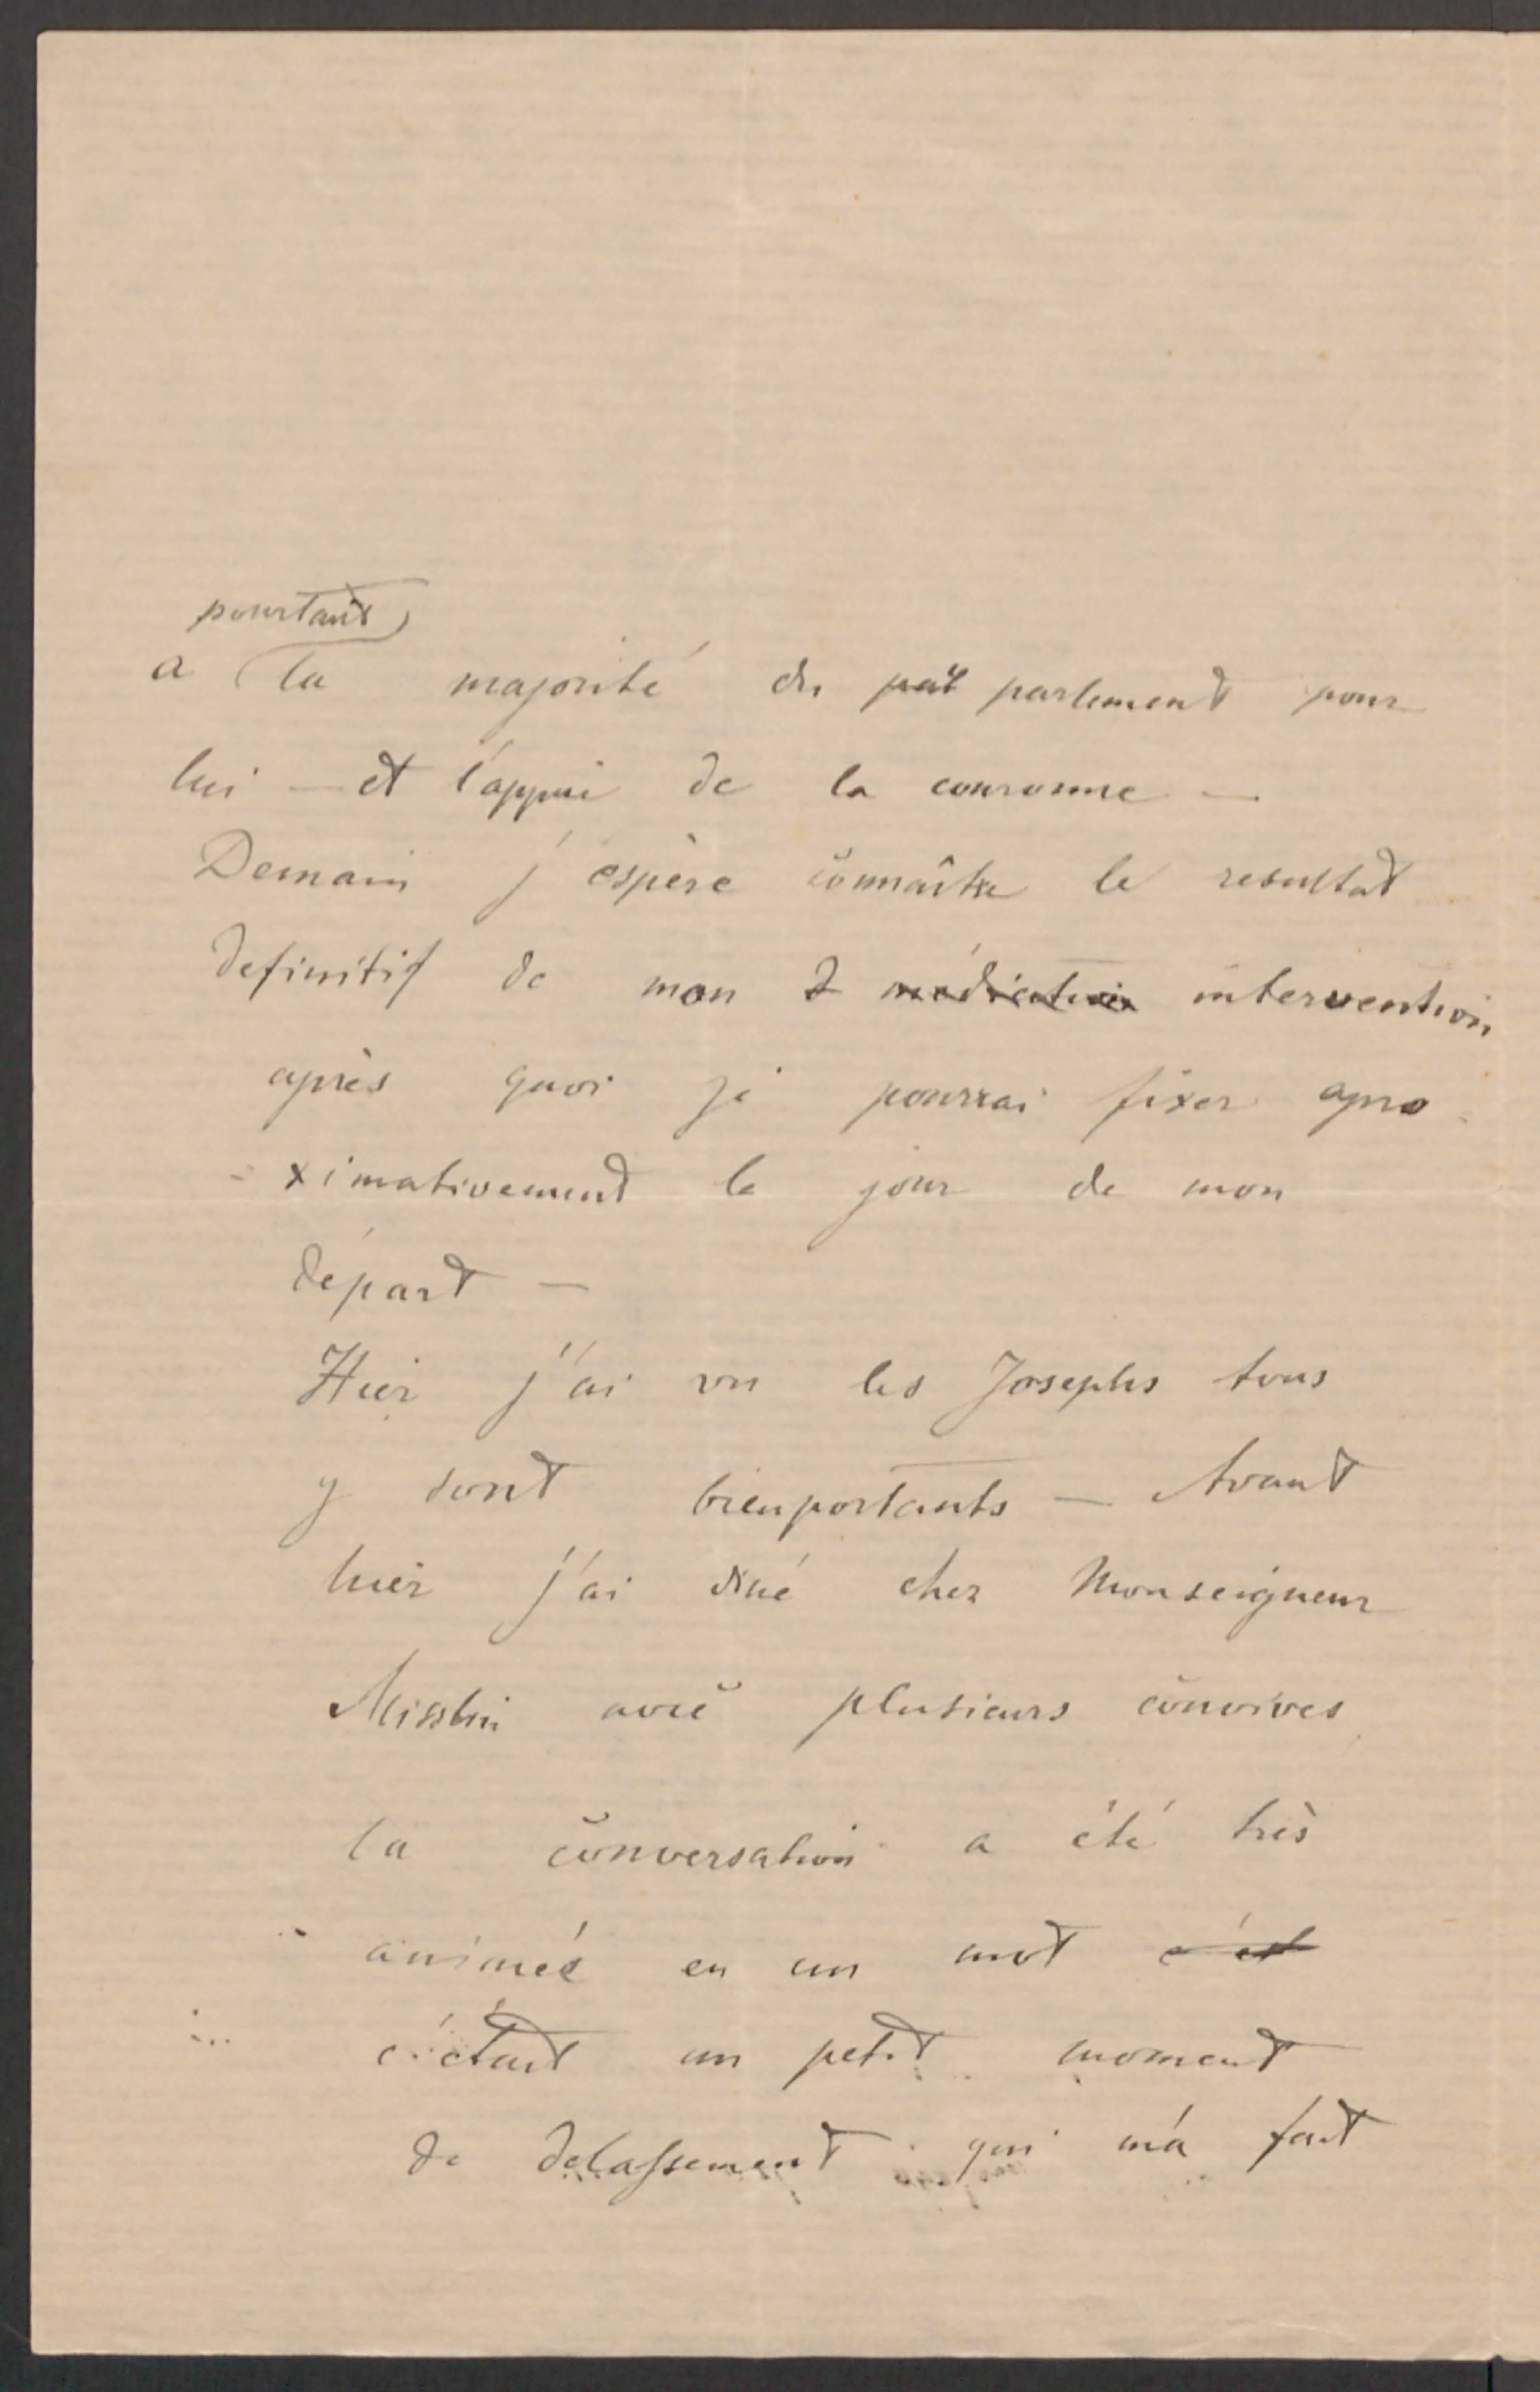 pourtant
a la majorité du pat parlement pour
lui — et l'appui de la couronne —
Demain j'éspère connaître le resultat
definitif de mon I médiation intervention
après quoi je pourrai fixer apro
- ximativement le jour de mon
départ —
Hier j'ai vu les Josephs tous
y sont bienportants — Avant
hier j'ai diné chez Monseigneur
Misslin avec plusieurs convives
la conversation a été très
animée en un mot c'est
c'était un petit moment
de delassement qui m'a fait